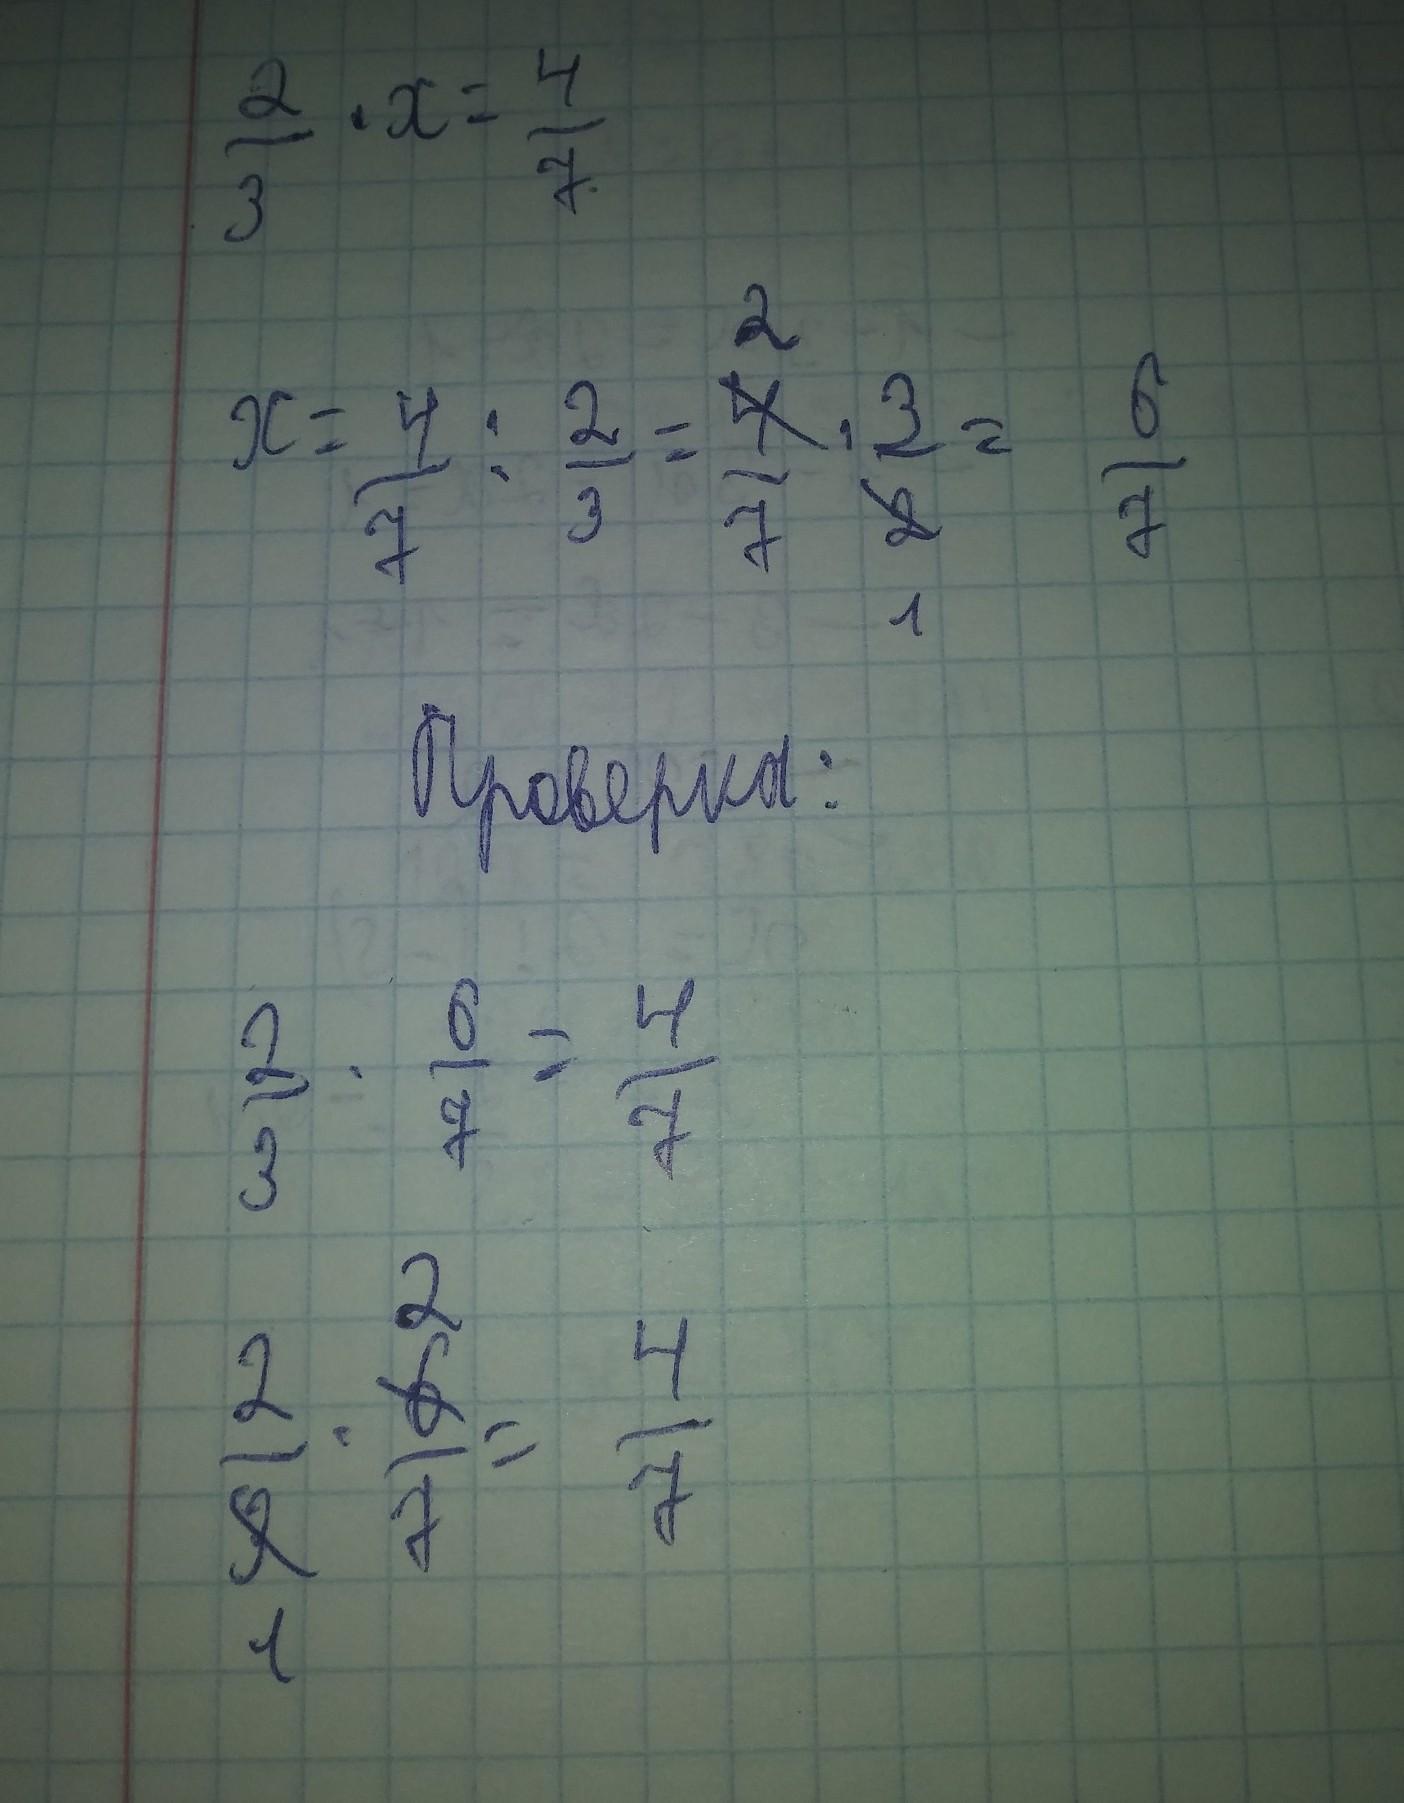 2/3 · x = 4/7
x = 4/7 : 2/3 = 4/7 2 · 3/2 1 = 6/7
Проверка:
2/3 · 6/7 = 4/7
2/3 1 · 6/7 2 = 4/7